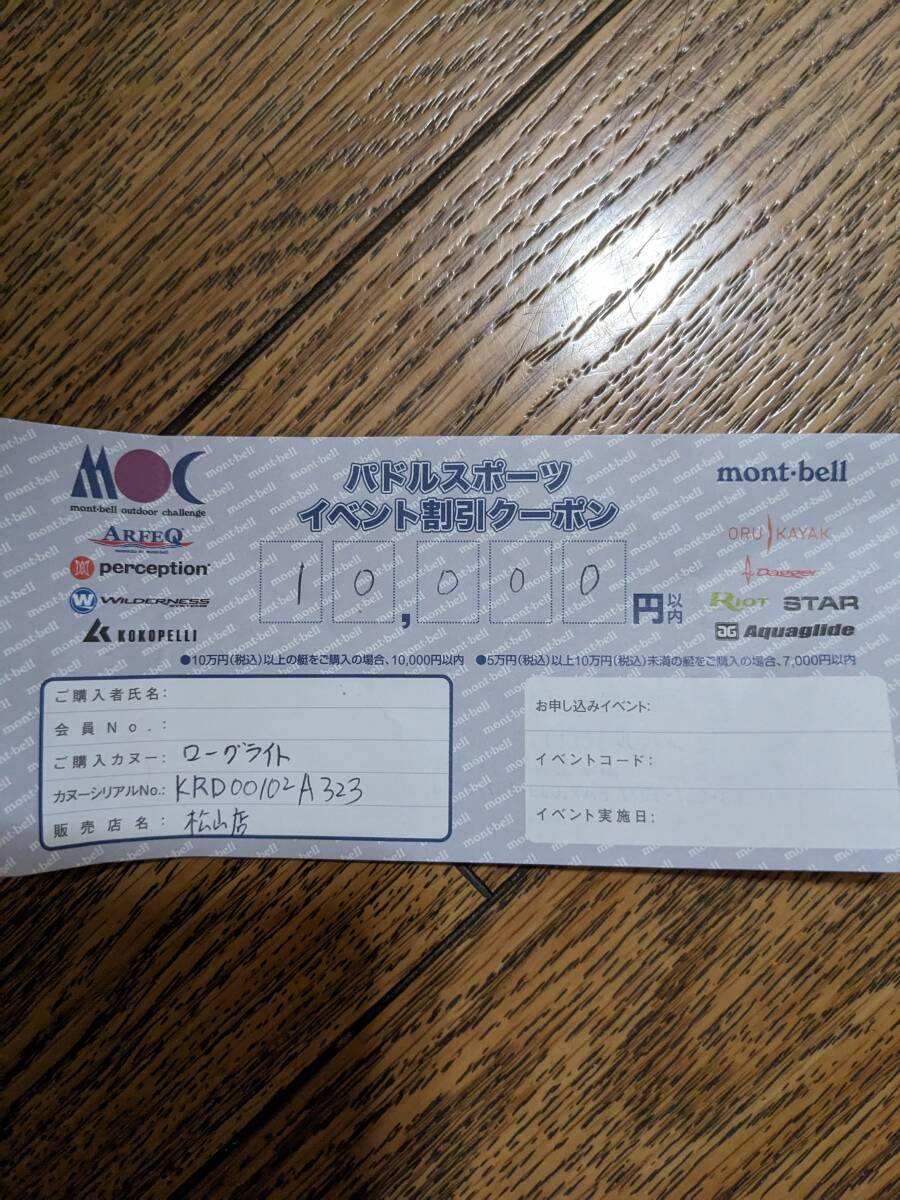 MOC
mont-bell outdoor challenge
パドルスポーツ
イベント割引クーポン
mont-bell
ARFEQ
perception
WILDERNESS SYSTEMS
KOKOPELLI
10,000円以内
ORU KAYAK
Dagger
RIOT STAR
AG Aquaglide
●10万円(税込)以上の艇をご購入の場合、10,000円以内 ●5万円(税込)以上10万円(税込)未満の艇をご購入の場合、7,000円以内
ご購入者氏名:
会員No.:
ご購入カヌー: ローグライト
カヌーシリアルNo.: KRD00102A323
販売店名: 松山店
お申し込みイベント:
イベントコード:
イベント実施日: